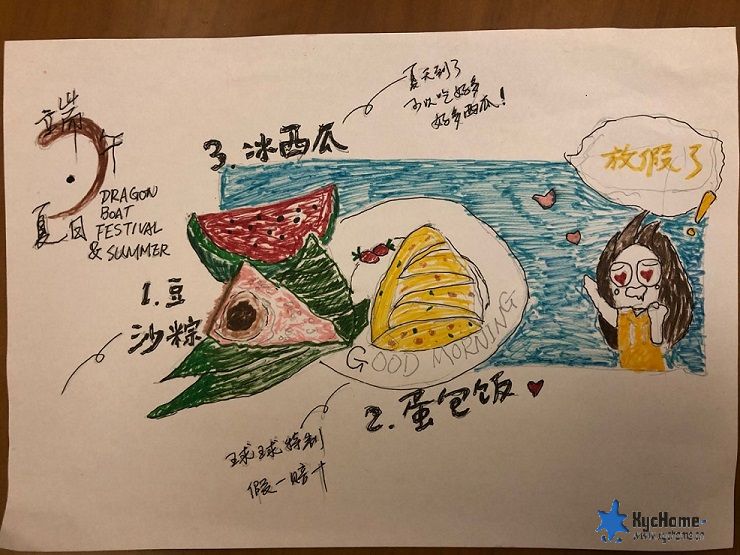 端
午
夏日
DRAGON
BOAT
FESTIVAL
& SUMMER
3. 冰西瓜
夏天到了
可以吃好多
好多西瓜!
放假了!
1. 豆
沙粽
GOOD MORNING
2. 蛋包饭
球球特制
假一赔十
XycHome
www.xychome.cn